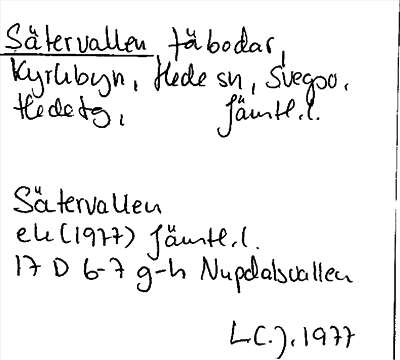 Sätervallen, fäbodar,
Kyrkbyn, Hede sn, Svegso,
Hedetg, Jämtl.l.
Sätervallen
ek (1977) Jämtl.l.
17 D 6-7 g-h Nupdalsvallen
1977